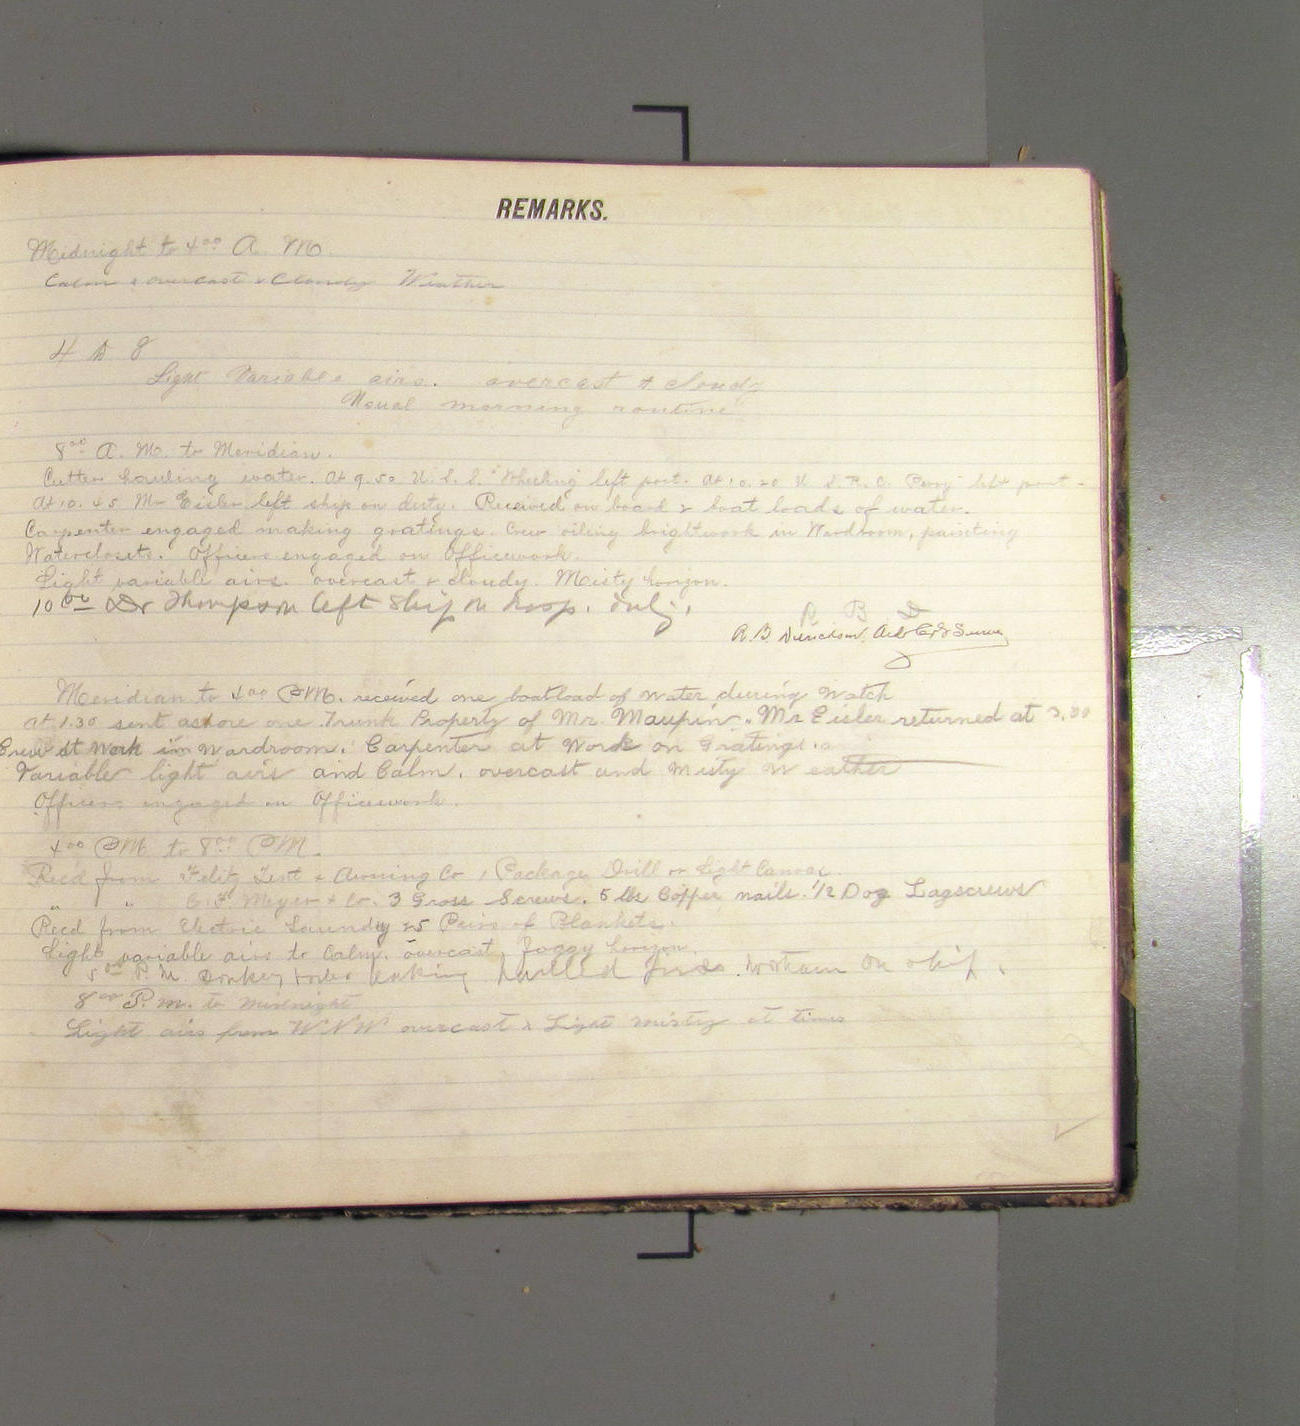 REMARKS.
Midnight to 4⁰⁰ A. M.
Calm & overcast & Cloudy Weather
4 to 8
Light Variable airs. overcast & cloudy
Usual morning routine
8⁰⁰ A. M. to Meridian.
Cutter hauling water. At 9.50 U. S. S. "Wheeling" left port. At 10.20 U. S. R. C. Perry left port.
At 10.45 Mr Eisler left ship on duty. Received on board 2 boat loads of water.
Carpenter engaged making gratings. Crew oiling brightwork in Wardroom, painting
Waterclosets. Officers engaged on Officework.
Light variable airs. overcast & cloudy. Misty horizon.
10⁰⁰ Dr Thompson left Ship on hosp. duty.
R B D
R. B.
Meridian to 4⁰⁰ PM. received one boatload of water during Watch
at 1.30 sent ashore one Trunk Property of Mr. Maupin. Mr Eisler returned at 3.00
Crew at Work in Wardroom. Carpenter at Work on Gratings.
Variable light airs and Calm. overcast and Misty Weather
Officers engaged on Officework.
4⁰⁰ PM to 8⁰⁰ PM.
Rec'd from Tent & Awning Co 1 Package Drill or Light Canvas.
" " Meyer & Co. 3 Gross Screws. 5 lbs Copper nails. 1/2 Doz Lagscrews
Recd from Electric Laundry 25 Pairs of Blankets.
Light variable airs to Calm. overcast, foggy horizon.
5⁰⁰ P. M. Donkey boiler leaking hauled fires. no steam on ship.
8⁰⁰ P. m. to midnight
Light airs from WNW overcast & Light misty at times